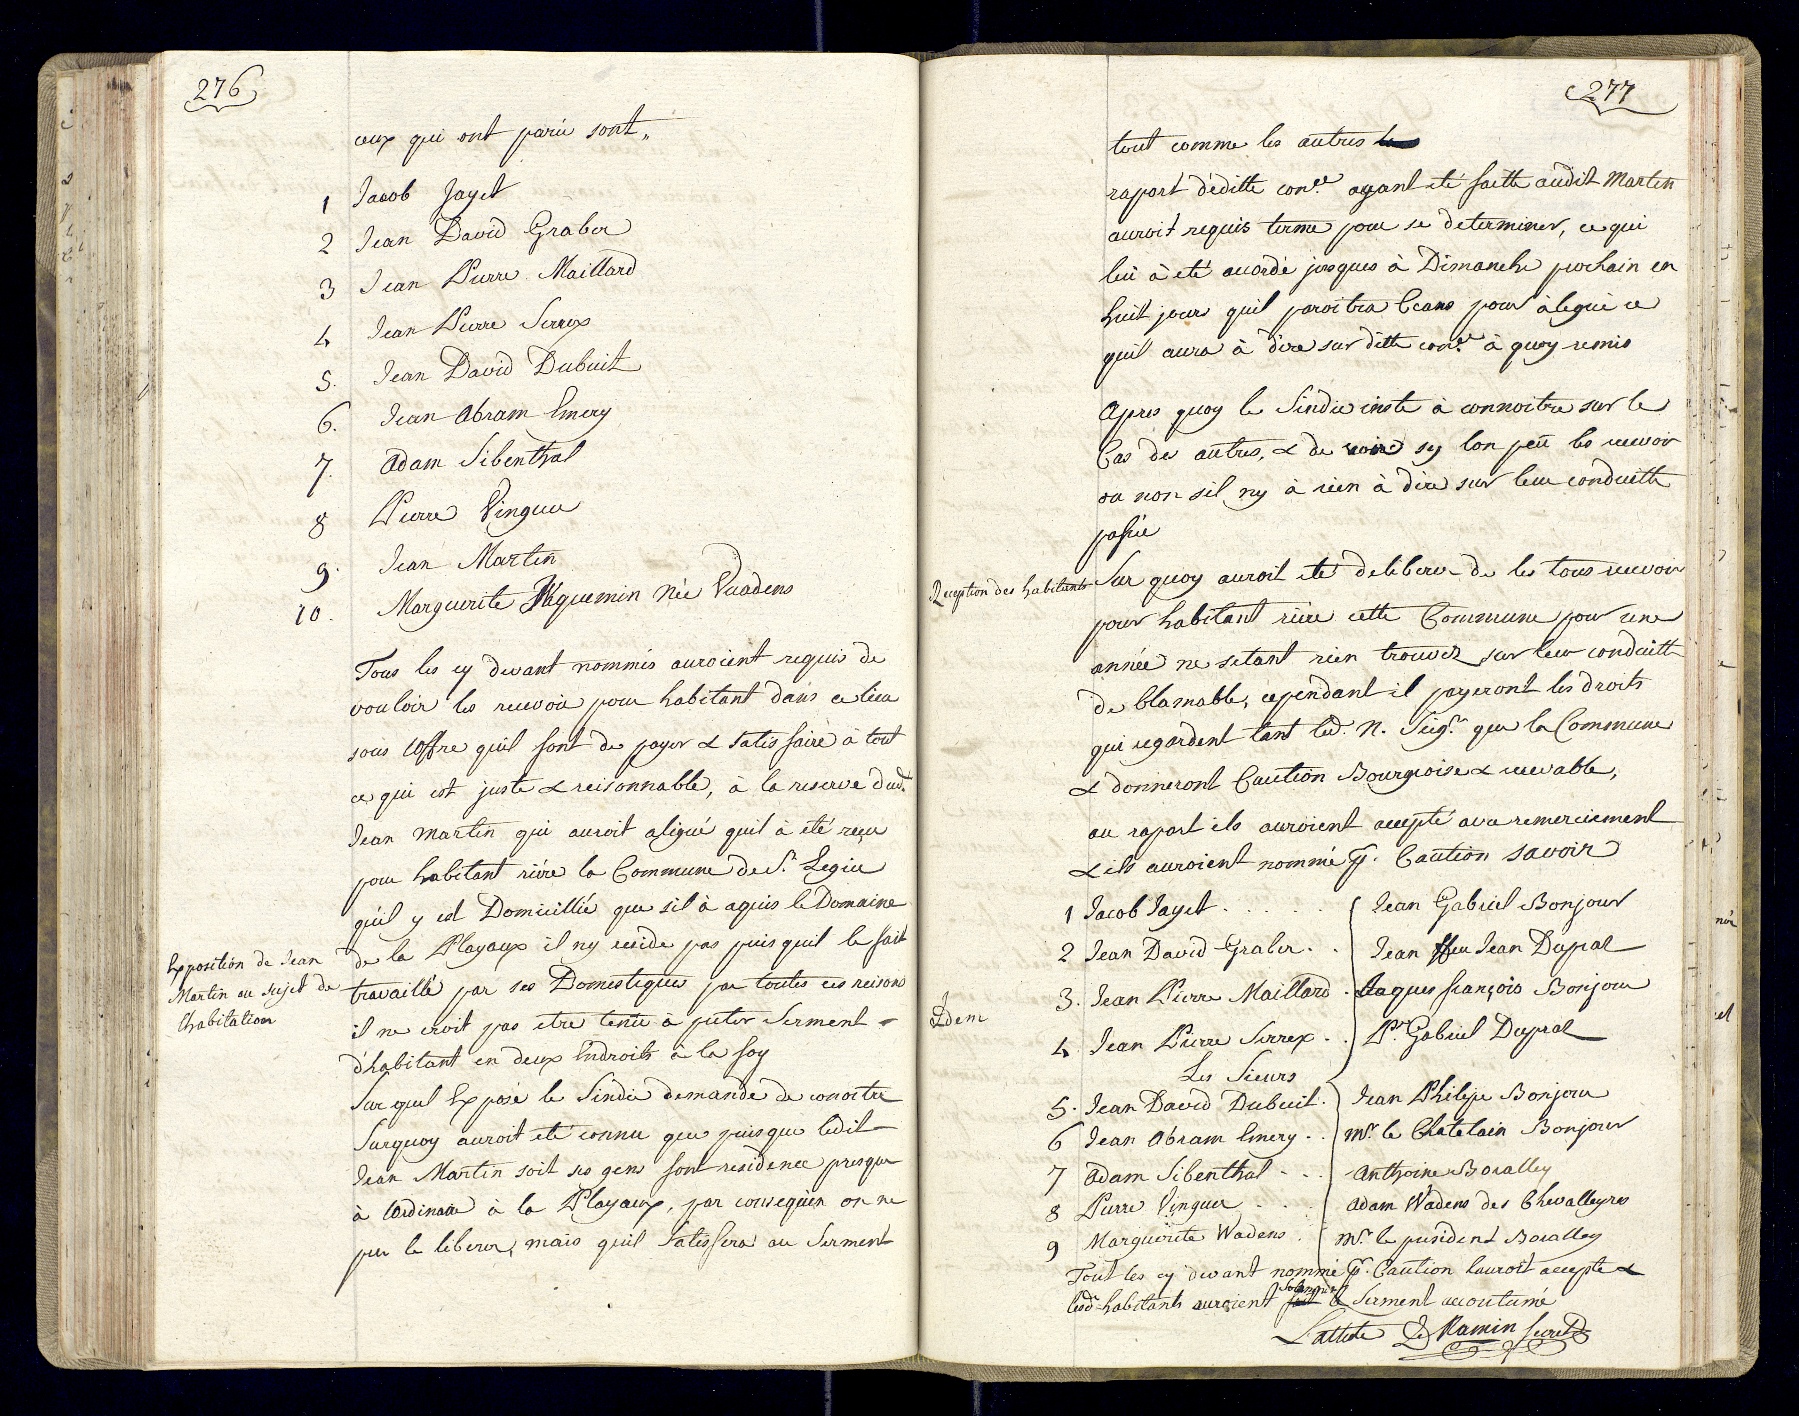 276
ceux qui ont parû sont,,
1 Jacob Jayet
2 Jean David Graber
3 Jean Pierre Maillard
4 Jean Pierre Serrex
5. Jean David Dubuit
6. Jean Abram Emery
7. Adam Sibenthal
8 Pierre Vingue
9. Jean Martin
10. Marguerite Jaquemin Née Vuadens
Tous les cy devant nommés auroient requis de
vouloir les recevoir pour habitant dans ce lieu
sous l'offre quil font de payer & satisfaire à tout
ce qui est juste & reisonnable, à la reserve dud.t
Jean Martin qui auroit aligué quil à eté reçu
pour habitant riére la Commune de S.t Legie
quil y est Domicillié que sil à aquis le Domaine
de la Playaux il ny reside pas puis quil le fait
Exposition de Jean
Martin au sujet de
lhabitation
travaillé par ses Domestiques par toutes ces reisons
il ne croit pas etre tenu à preter Serment
d'habitant en deux Endroits à la foy
Sur quel Exposé le Sindic demande de conoitre
Surquoy auroit eté connu que puisque ledit
Jean Martin soit ses gens font residence presque
à lordinaire à la Playaux, par consequen on ne
peu le liberer, mais quil Satisfera au Serment
277
tout comme les autres
raport déditte con.ce ayant eté faitte audit Martin
auroit requis terme pour se determiner, ce qui
lui à eté acordé jusques à Dimanche prochain en
huit jours quil paroitra Ceans pour alegué ce
quil aura à dire sur ditte con.ce à quoy remis
Apres quoy le Sindic inste à connoitre sur le
Cas des autres, & de voire sy lon peu les recevoir
ou non sil ny à rien à dire sur leur conduitte
passée
Reception des habitants
Sur quoy auroit eté deliberer de les tous recevoir
pour habitant riére cette Commune pour une
année ne setant rien trouver sur leur conduitte
de blamable, cependant il payeront les droits
qui regardent tant led. N. Seig.r que la Commune
& donneront Caution Bourgeoise & recevable,
au raport ils auroient accepté avec remerciement
& ils auroient nommé p.r Caution savoir
1 Jacob Jayet . . . . . Jean Gabriel Bonjour
2 Jean David Graber . . Jean ffeu Jean Dupral
3. Jean Pierre Maillard . Jaques françois Bonjour
Idem
4 Jean Pierre Serrex . . P.re Gabriel Dupral
Les Sieurs
5. Jean David Dubuit . Jean Philipe Bonjour
6 Jean Abram Emery . . M.r le Chatelain Bonjour
7 Adam Sibenthal . . Anthoine Boralley
8 Pierre Vingue . . . Adam Wadens des Chevalleyres
9 Marguerite Wadens . M.r le president Boralley
Tout les cy devant nommé p.r Caution lauroit accepte &
lesd.ts habitants auroient Solemnisé le Serment acoutumé
Latteste De Ramin Secret.